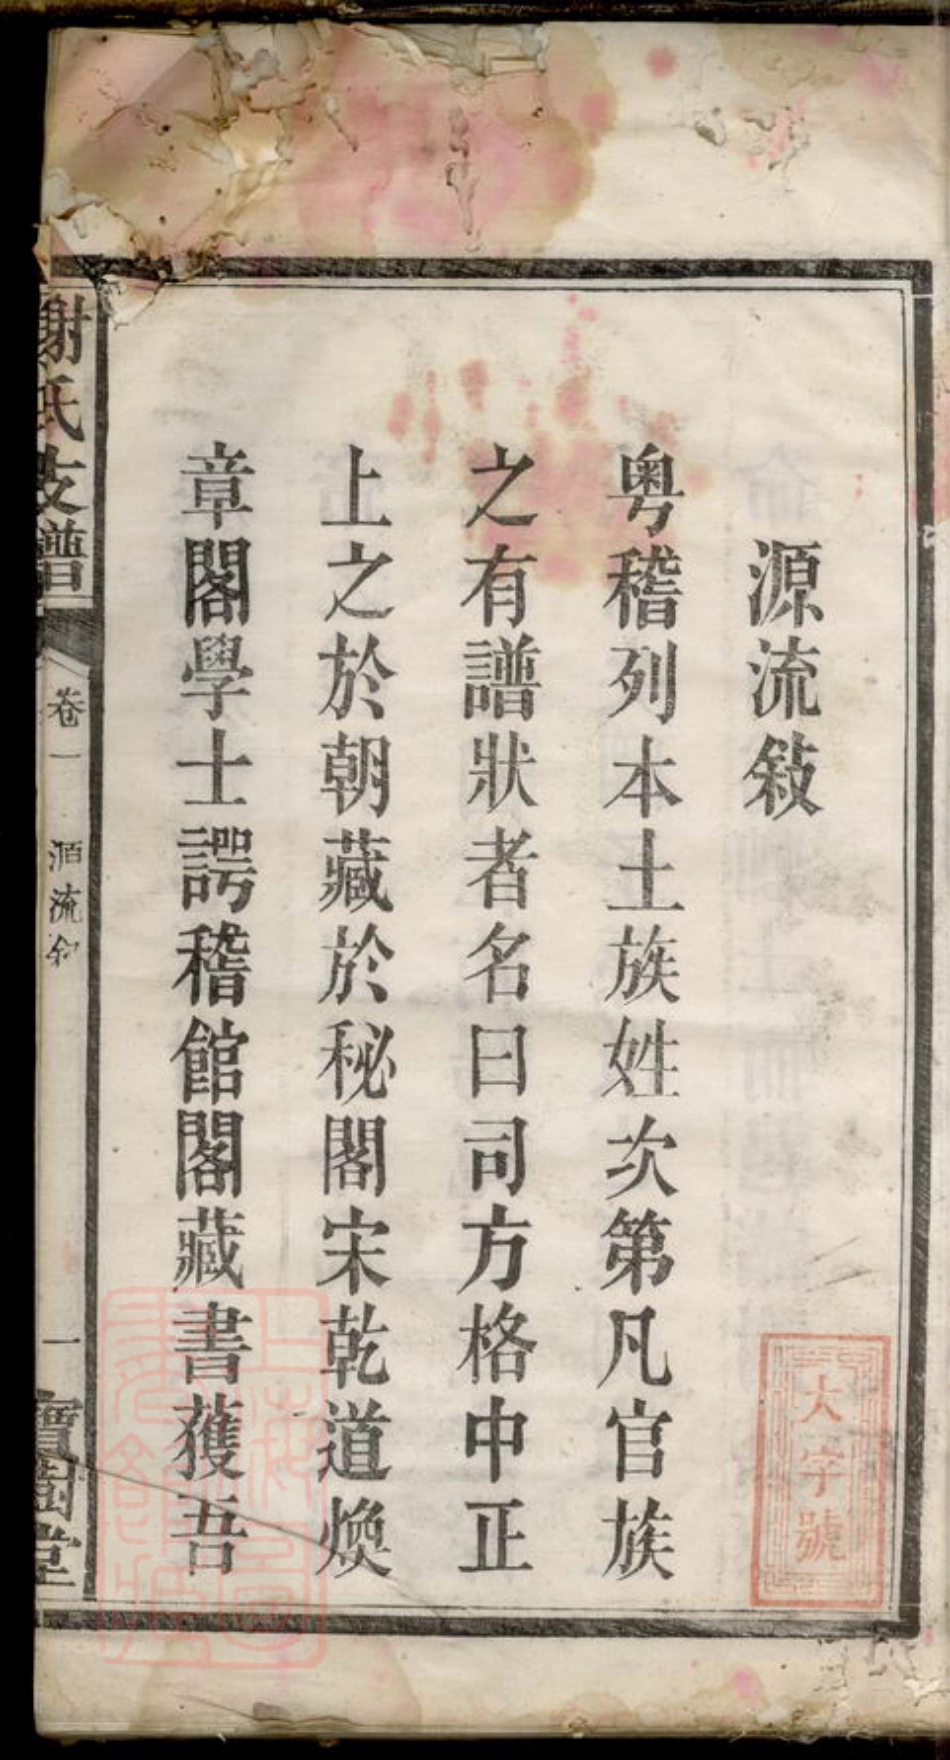 源流敍
粤稽列本土族姓次第凡官族
之有譜狀者名曰司方格中正
上之於朝藏於秘閣宋乾道煥
章閣學士諤稽館閣藏書獲吾
謝氏支譜
卷一
源流敍
一
寶樹堂
大字號